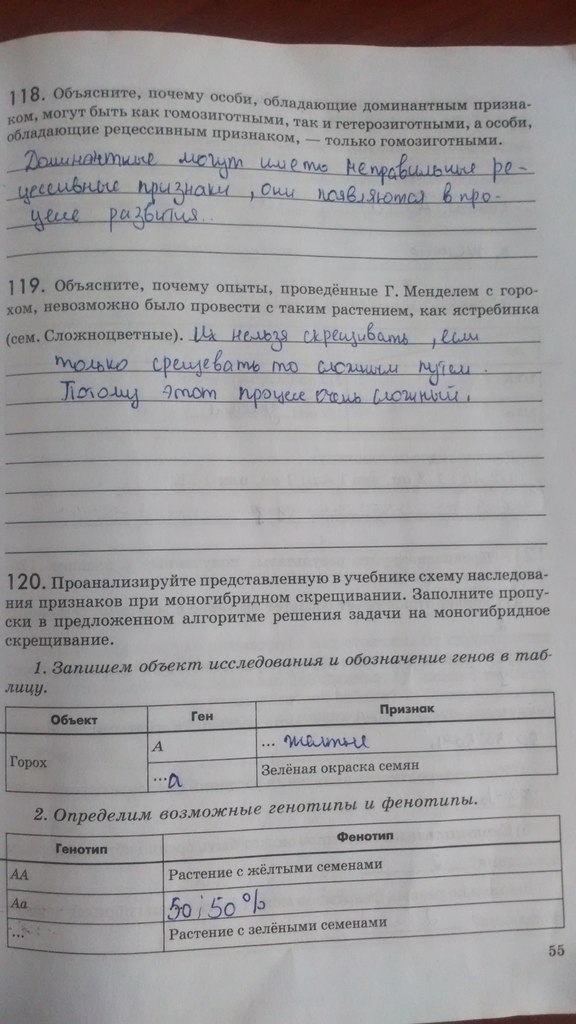 118. Объясните, почему особи, обладающие доминантным призна-
ком, могут быть как гомозиготными, так и гетерозиготными, а особи,
обладающие рецессивным признаком, — только гомозиготными.
Доминантные могут иметь неправильные ре-
цессивные признаки, они появляются в про-
цесе развития.
119. Объясните, почему опыты, проведённые Г. Менделем с горо-
хом, невозможно было провести с таким растением, как ястребинка
(сем. Сложноцветные). Их нельзя скрещивать, если
только срещевать то сложным путем.
Потому этот процесс очень сложный.
120. Проанализируйте представленную в учебнике схему наследова-
ния признаков при моногибридном скрещивании. Заполните пропу-
ски в предложенном алгоритме решения задачи на моногибридное
скрещивание.
1. Запишем объект исследования и обозначение генов в таб-
лицу.
Объект Ген Признак
Горох A ... желтые
...а Зелёная окраска семян
2. Определим возможные генотипы и фенотипы.
Генотип Фенотип
AA Растение с жёлтыми семенами
Aa 50; 50%
... Растение с зелёными семенами
55